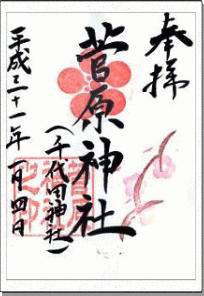 奉拝
菅原神社
(千代田神社)
平成三十一年一月四日